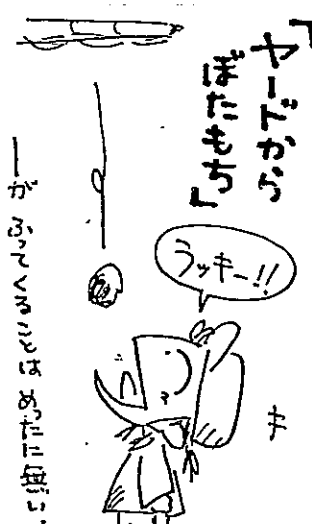 「ヤードから
ぼたもち」
ラッキー!!
ーがふってくることはめったに無い.